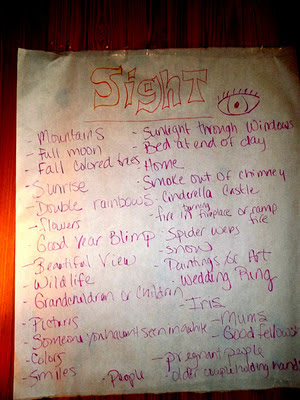 Sight
- Mountains
- Full moon
- Fall colored trees
- Sunrise
- Double rainbows
- Flowers
- Good Year Blimp
- Beautiful View
- Wildlife
- Grandchildren or Children
- Pictures
- Someone you havent seen in awhile
- Colors
- Smiles
- Sunlight through Windows
- Bed at end of day
- Home
- Smoke out of chimney
- Cinderella Castle
- fire burning in fireplace or camp fire
- Spider webs
- Snow
- Paintings or Art
- Wedding Ring
- Iris
- Mums
- Good fellowship
- pregnant people
- People
- older couple holding hands